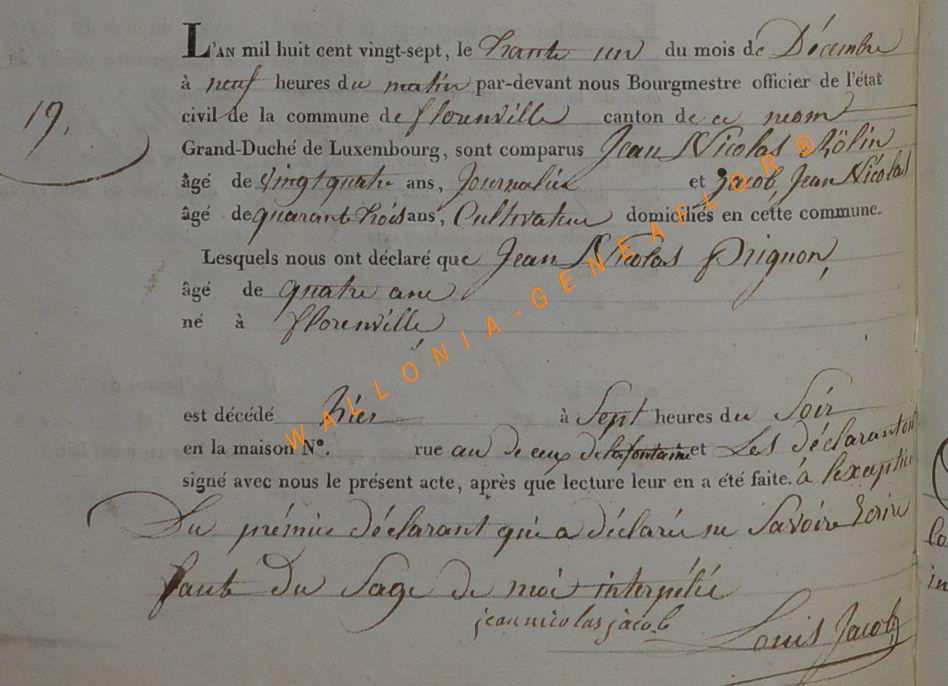 L'AN mil huit cent vingt-sept, le trante un du mois de Décembre
à neuf heures du matin par-devant nous Bourgmestre officier de l'état
civil de la commune de florenville canton de ce neom
19.
Grand-Duché de Luxembourg, sont comparus Jean Nicolas Rölin
âgé de vingt quatre ans, Journalier et jacob, Jean Nicolas
âgé de quarant trois ans, Cultivateur domiciliés en cette commune.
Lesquels nous ont déclaré que Jean Nicolas Prignon,
âgé de quatre ans
né à florenville
est décédé hier à Sept heures du Soir
en la maison N°. rue au de ceux de la fontaine et Les déclarant ont
signé avec nous le présent acte, après que lecture leur en a été faite. à lexception
Du prémier déclarant qui a déclaré ne Savoire Ecrire
faute Du Sage de moi interpélié
jeannicolas jacob
Louis Jacob
WALLONIA-GENEAFLOR®
lo
in